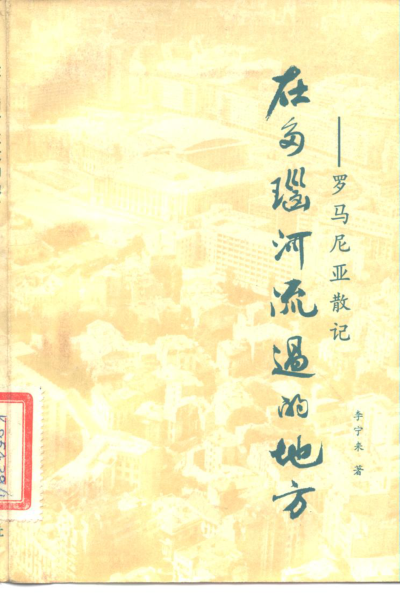 在多瑙河流過的地方
——罗马尼亚散记
李宁来 著